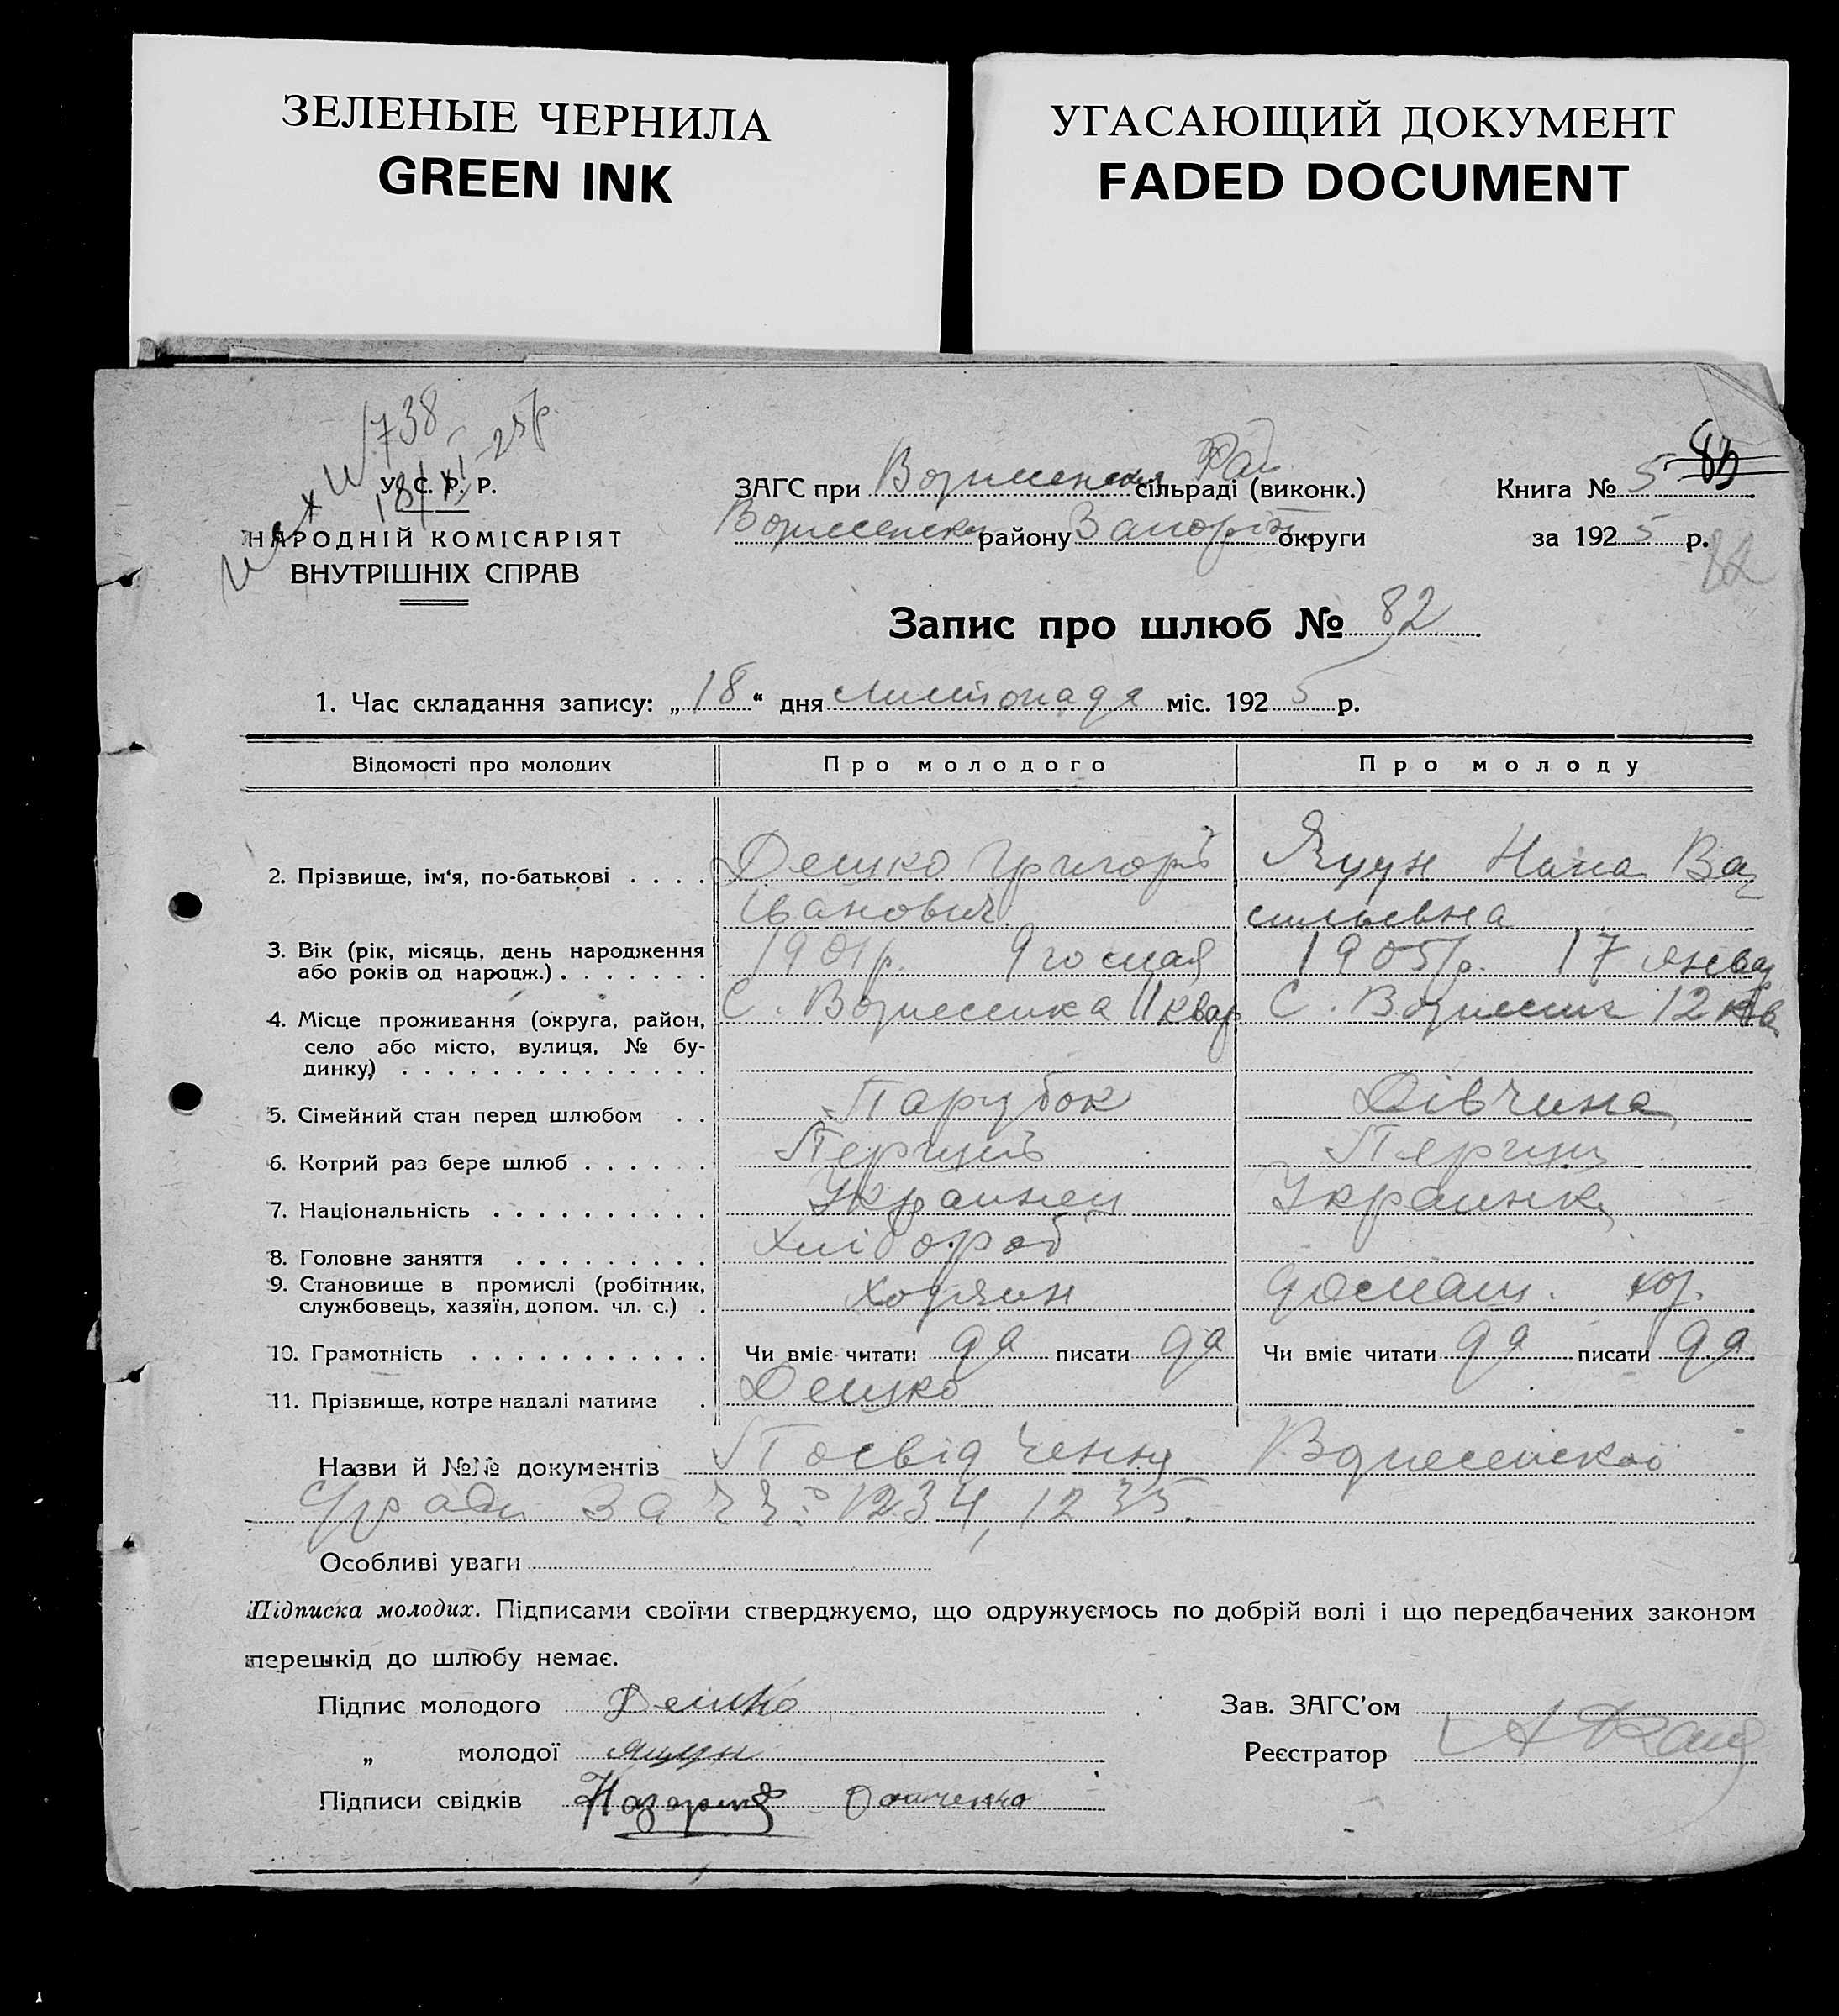 ЗЕЛЕНЫЕ ЧЕРНИЛА
GREEN INK
УГАСАЮЩИЙ ДОКУМЕНТ
FADED DOCUMENT
738
18/XI-25р.
У. С. Р. Р.
НАРОДНІЙ КОМІСАРІЯТ
ВНУТРІШНІХ СПРАВ
ЗАГС при Вознесенськ. Рай. сільраді (виконк.)
Вознесенськ. району Запоріж. округи
Книга № 5 83
за 1925 р.
82
Запис про шлюб № 82
1. Час складання запису: „18“ дня листопада міс. 1925 р.
Відомості про молодих
Про молодого
Про молоду
2. Прізвище, ім'я, по-батькові . . . . Дешко Григорій Яцун Нана Ва
Іванович сильевна
3. Вік (рік, місяць, день народження
або років од народж.) . . . . . . . 1901р. 9го мая 1905р. 17 янва
4. Місце проживання (округа, район, С. Вознесенка 11 квар С. Вознесенк 12 кв
село або місто, вулиця, № бу-
динку) . . . . . . . . . . . . . .
5. Сімейний стан перед шлюбом . . Парубок Дівчина
6. Котрий раз бере шлюб . . . . . . Перший Перший
7. Національність . . . . . . . . . . Украинец Украинка
8. Головне заняття . . . . . . . . . Хлібороб
9. Становище в промислі (робітник,
службовець, хазяїн, допом. чл. с.) . хозяин домаш. хоз.
10. Грамотність . . . . . . . . . . . Чи вміє читати да писати да Чи вміє читати да писати да
11. Прізвище, котре надалі матиме . Дешко
Назви й №№ документів Посвідчення Вознесенской
С/ради за 1234, 1235.
Особливі уваги
Підписка молодих. Підписами своїми стверджуємо, що одружуємось по добрій волі і що передбачених законом
перешкід до шлюбу немає.
Підпис молодого Дешко
Зав. ЗАГС'ом
„ молодої Яцун
Реєстратор
Підписи свідків